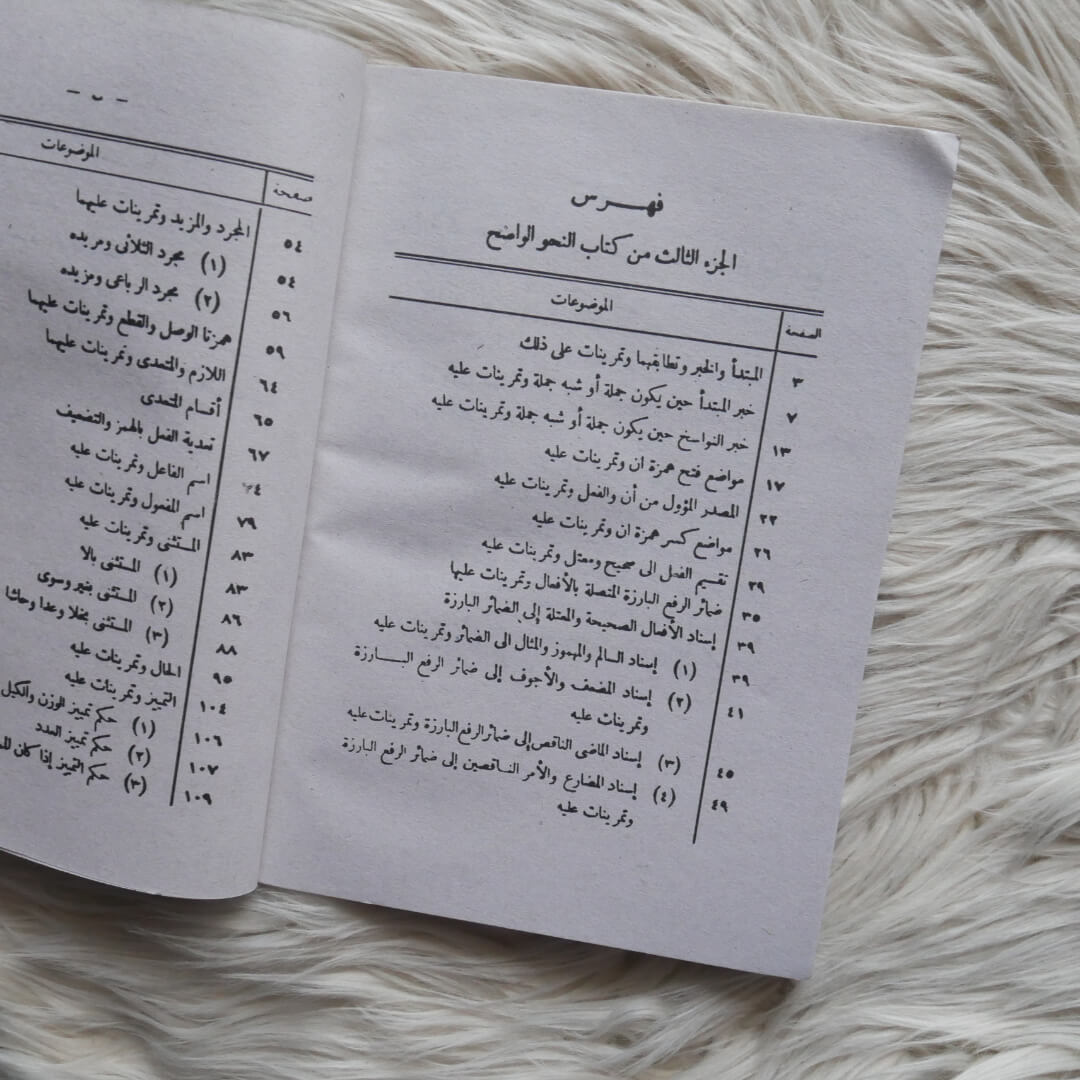 فهرس
الجزء الثالث من كتاب النحو الواضح
الصفحة الموضوعات
٣ المبتدأ والخبر وتطابقهما وتمرينات على ذلك
٧ خبر المبتدأ حين يكون جملة أو شبه جملة وتمرينات عليه
١٣ خبر النواسخ حين يكون جملة أو شبه جملة وتمرينات عليه
١٧ مواضع فتح همزة ان وتمرينات عليه
٢٢ المصدر المؤول من أن والفعل وتمرينات عليه
٢٦ مواضع كسر همزة ان وتمرينات عليه
٢٩ تقسيم الفعل الى صحيح ومعتل وتمرينات عليه
٣٥ ضمائر الرفع البارزة المتصلة بالأفعال وتمرينات عليها
٣٩ إسناد الأفعال الصحيحة والمعتلة إلى الضمائر البارزة
٣٩ (١) إسناد السالم والمهموز والمثال الى الضمائر وتمرينات عليه
٤١ (٢) إسناد المضعف والأجوف إلى ضمائر الرفع البارزة
وتمرينات عليه
٤٥ (٣) إسناد الماضى الناقص إلى ضمائر الرفع البارزة وتمرينات عليه
٤٩ (٤) إسناد المضارع والأمر الناقصين إلى ضمائر الرفع البارزة
وتمرينات عليه
— ب —
صفحة الموضوعات
٥٤ المجرد والمزيد وتمرينات عليهما
٥٤ (١) مجرد الثلاثى ومزيده
٥٦ (٢) مجرد الرباعى ومزيده
٥٩ همزتا الوصل والقطع وتمرينات عليهما
٦٤ اللازم والمتعدى وتمرينات عليهما
٦٥ أقسام المتعدى
٦٧ تعدية الفعل بالهمز والتضعيف
٧٤ اسم الفاعل وتمرينات عليه
٧٩ اسم المفعول وتمرينات عليه
٨٣ المستثنى وتمرينات عليه
٨٣ (١) المستثنى بالا
٨٦ (٢) المستثنى بغير وسوى
٨٨ (٣) المستثنى بخلا وعدا وحاشا
٩٥ الحال وتمرينات عليه
١٠٤ التمييز وتمرينات عليه
١٠٦ (١) حكم تمييز الوزن والكيل
١٠٧ (٢) حكم تمييز العدد
١٠٩ (٣) حكم التمييز إذا كان